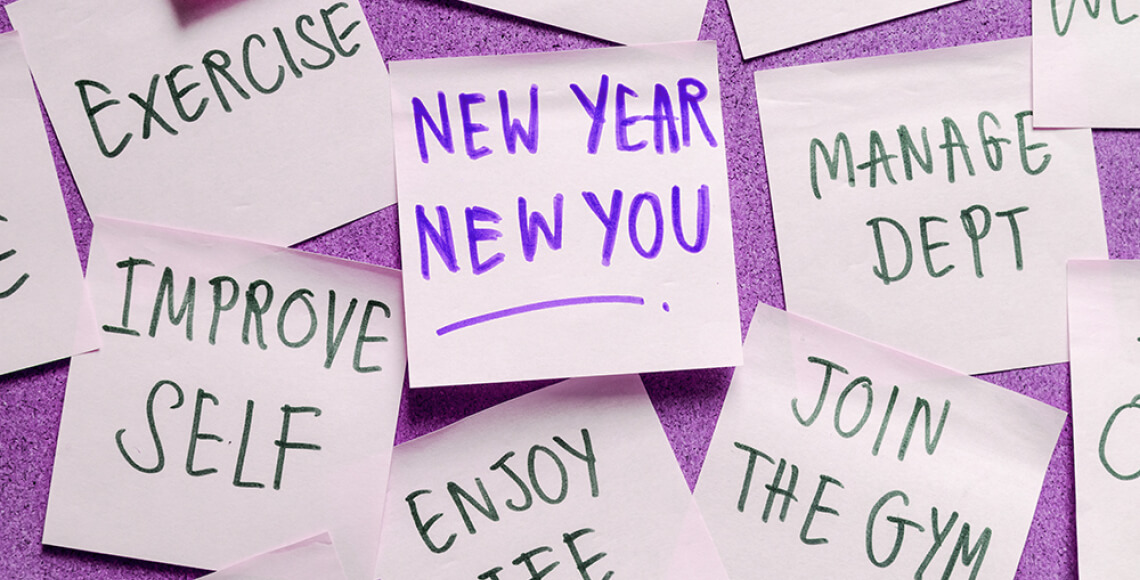 EXERCISE
NEW YEAR
NEW YOU
MANAGE
DEPT
IMPROVE
SELF
ENJOY
JOIN
THE GYM